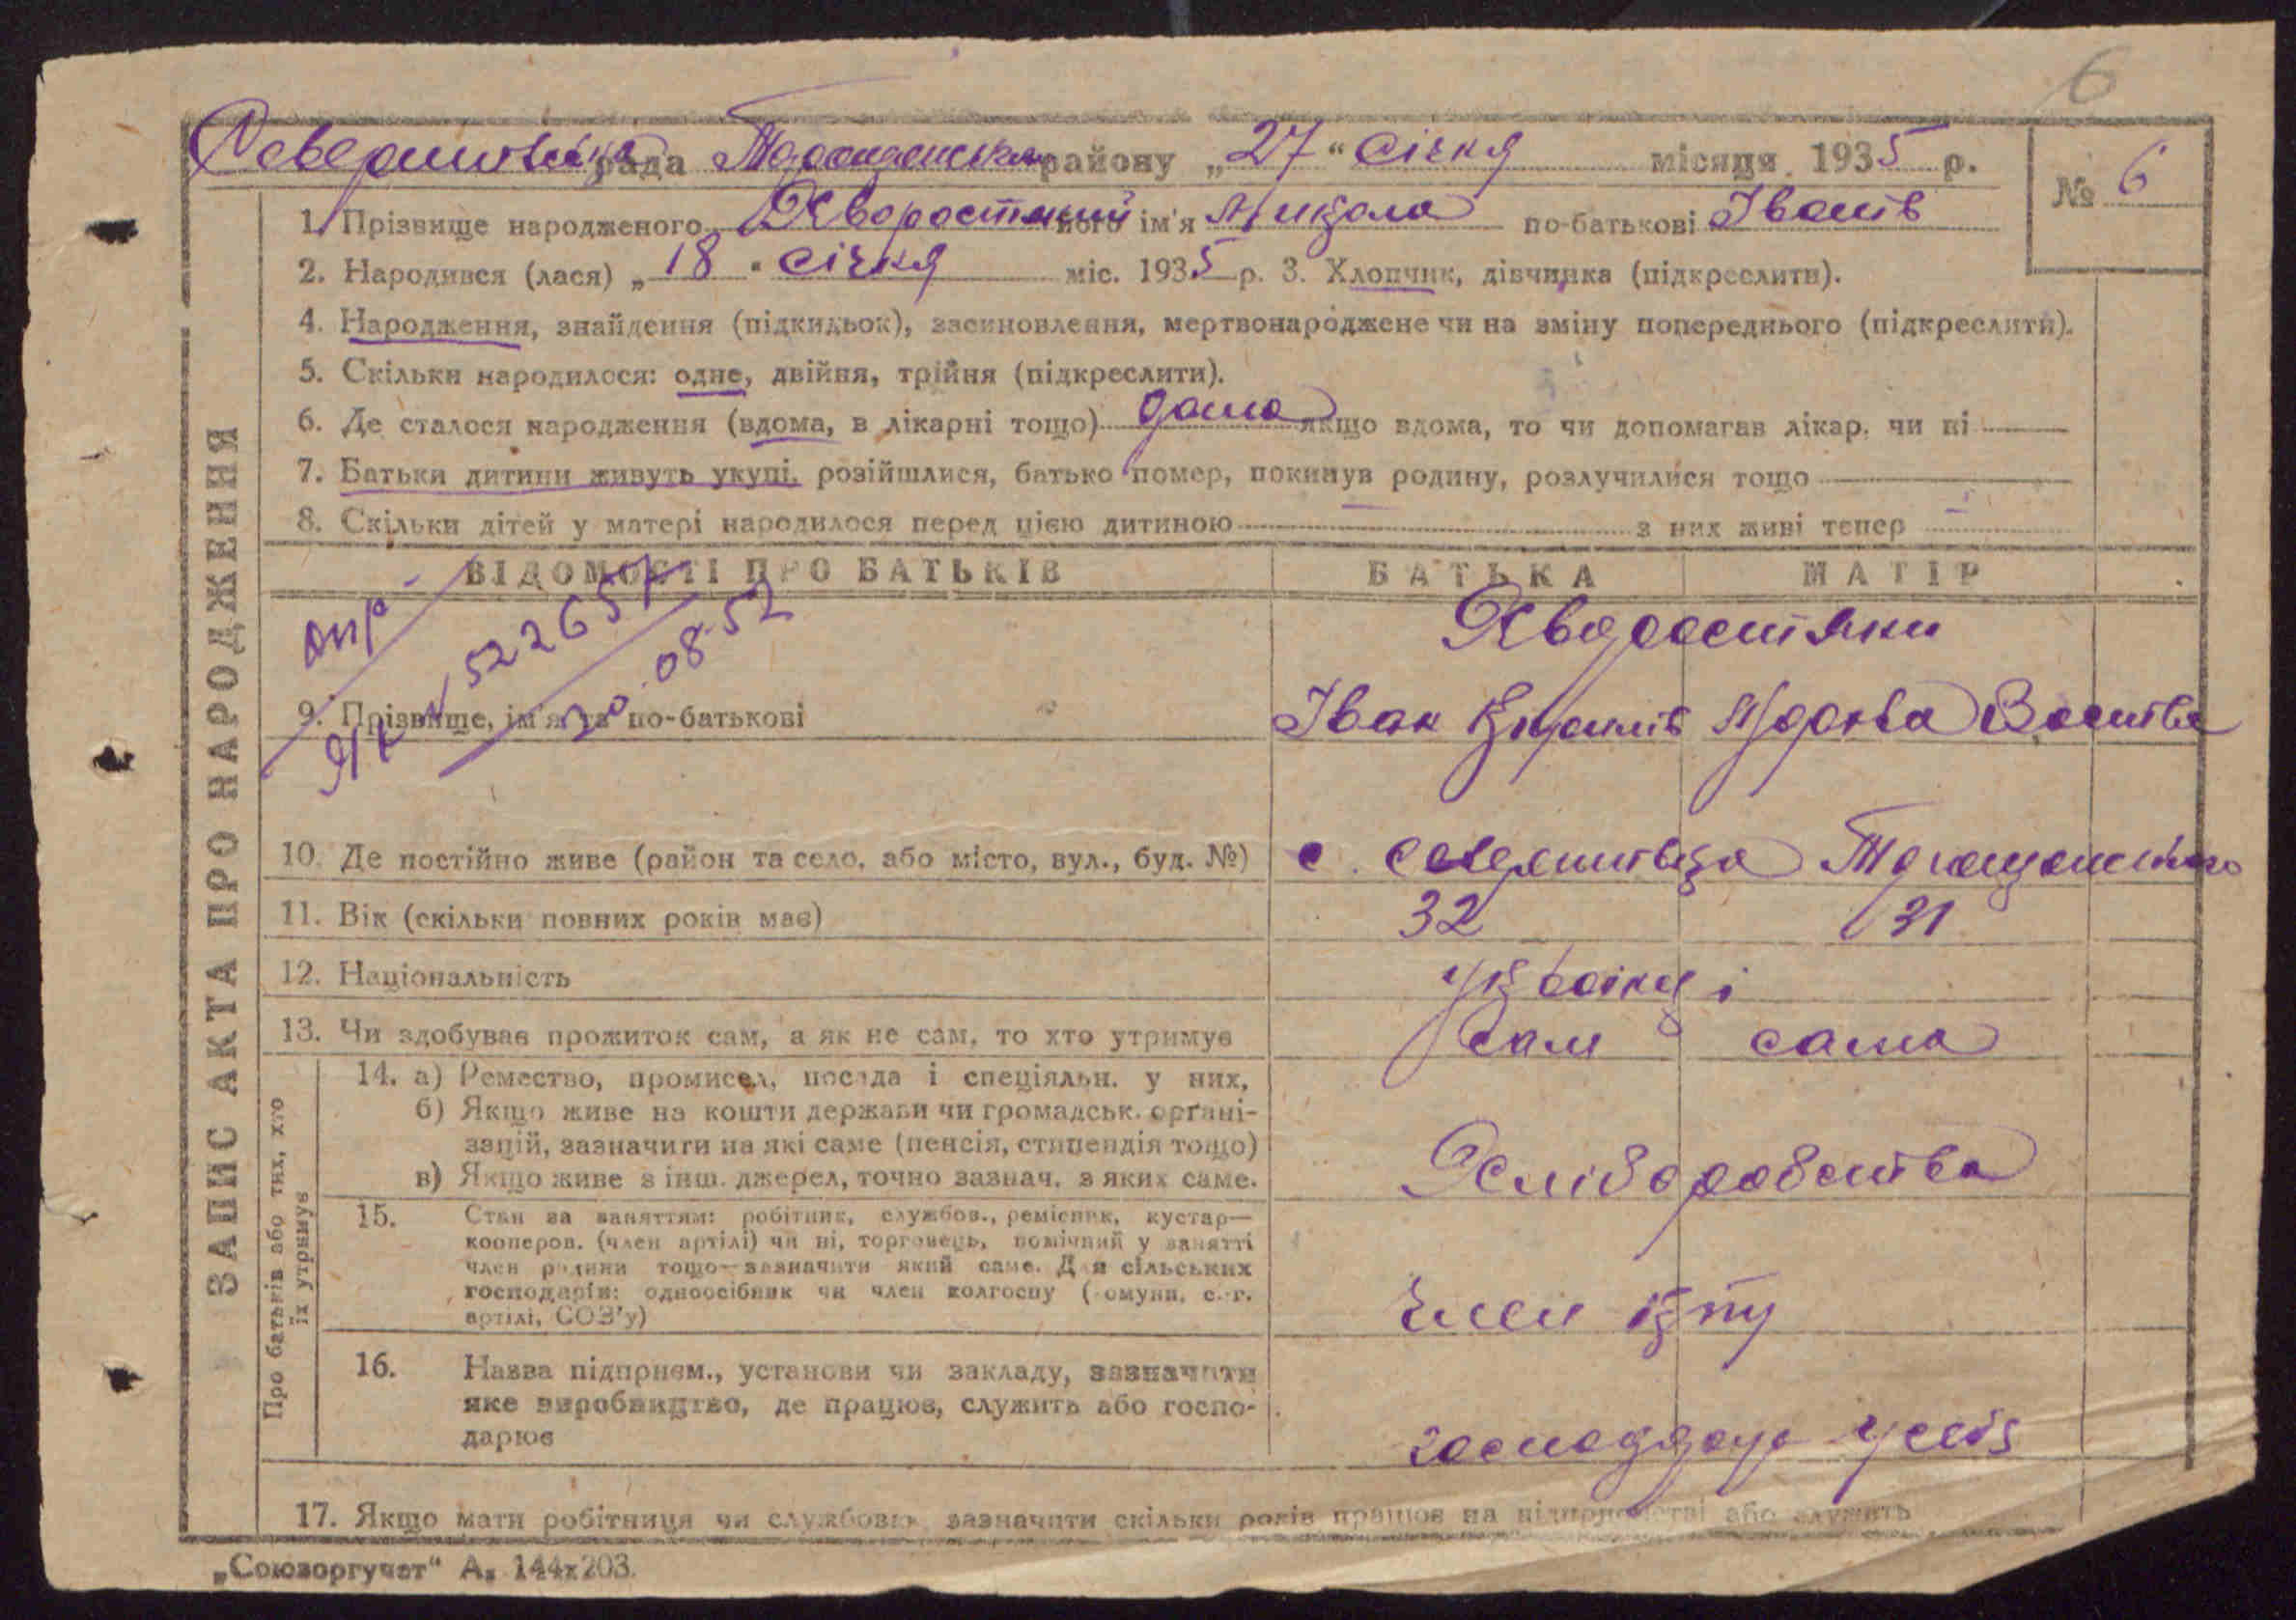 6
рада району „27“ січня місяця 1935 р.
№ 6
1. Прізвище народженого його ім'я Микола по-батькові Іванів
2. Народився (лася) „18“ січня міс. 1935 р. 3. Хлопчик, дівчинка (підкреслити).
4. Народження, знайдення (підкидьок), засиновлення, мертвонароджене чи на зміну попереднього (підкреслити).
5. Скільки народилося: одне, двійня, трійня (підкреслити).
6. Де сталося народження (вдома, в лікарні тощо) дома якщо вдома, то чи допомагав лікар, чи ні —
7. Батьки дитини живуть укупі, розійшлися, батько помер, покинув родину, розлучилися тощо
8. Скільки дітей у матері народилося перед цією дитиною — з них живі тепер —
ЗАПИС АКТА ПРО НАРОДЖЕННЯ
ВІДОМОСТІ ПРО БАТЬКІВ БАТЬКА МАТІР
522657
30.08.52
Хворостяни
9. Прізвище, ім'я та по-батькові Іван
10. Де постійно живе (район та село, або місто, вул., буд. №) с.
11. Вік (скільки повних років має) 32 31
12. Національність україці
13. Чи здобуває прожиток сам, а як не сам, то хто утримує сам сама
Про батьків або тих, хто їх утримує
14. а) Ремество, промисел, посада і спеціяльн. у них,
б) Якщо живе на кошти держави чи громадськ. організацій, зазначити на які саме (пенсія, стипендія тощо)
в) Якщо живе з інш. джерел, точно зазнач. з яких саме.
Хліборобства
15. Стан за заняттям: робітник, службов., ремісник, кустар—
кооперов. (член артілі) чи ні, торговець, помічний у занятті
член родини тощо—зазначити який саме. Для сільських
господарів: одноосібник чи член колгоспу (комуни, с.-г.
артілі, СОЗ'у)
член
16. Назва підприєм., установи чи закладу, зазначити
яке виробництво, де працює, служить або госпо-
дарює
17. Якщо мати робітниця чи службовка зазначити скільки років працює на підприємстві або служить
„Союзоргучет“ А₅ 144х203.